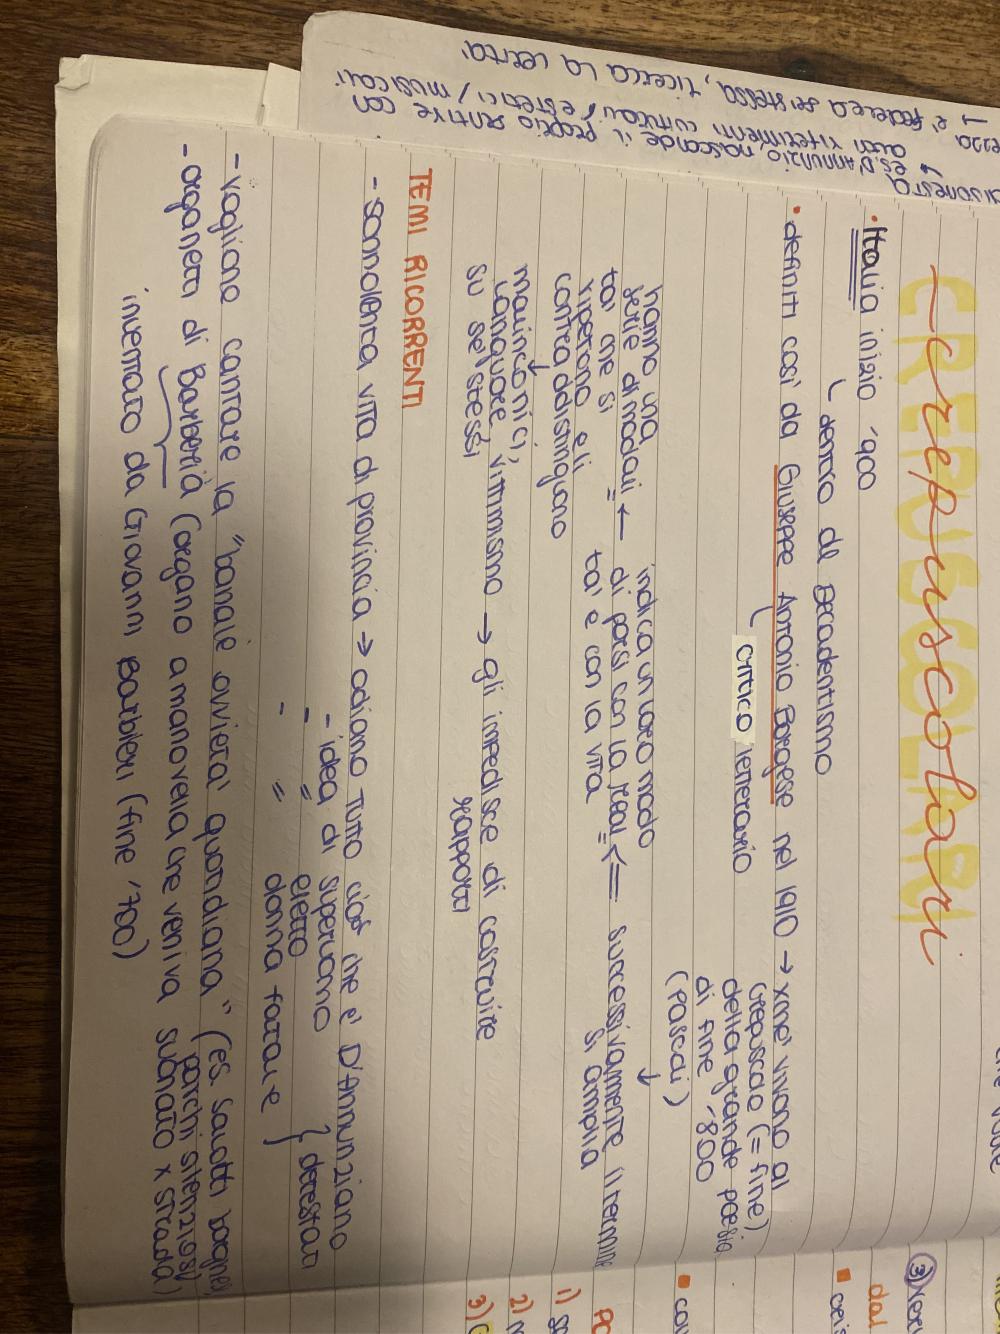 crepuscolari
CREPUSCOLARI
• Italia inizio '900
↳ dentro al Decadentismo
• definiti così da Giuseppe Antonio Borgese nel 1910 → xmé vivono al
crepuscolo (= fine)
della grande poesia
di fine '800
(Pascoli)
critico letterario
hanno una
serie di modali
tai che si
ripetono e li
contraddistinguono
= ← indica un loro modo
di porsi con la real
tà e con la vita
=
successivamente il termine
si amplia
malinconici,
languore, vittimismo → gli impedisce di costruire
su sé stessi
rapporti
TEMI RICORRENTI
- sonnolenta vita di provincia → odiano tutto ciò che è D'Annunziano
- idea di superuomo
- = eletto
- = donna fatale
} detestati
- vogliono cantare la "banale ovvietà quotidiana" (es. salotti borghesi,
parchi silenziosi)
- organetti di Barberia (organo a manovella che veniva suonato x strada)
inventato da Giovanni Barbieri (fine '700)
↳ es. D'Annunzio nasconde il proprio sentire con
altri riferimenti culturali / estetici / musicali
→ è fedele a se stessa, ricerca la verità
disonesta
ezza
3)
dal
PO
1)
2)
3)